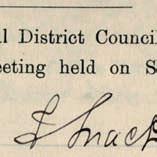 l District Council
eeting held on S